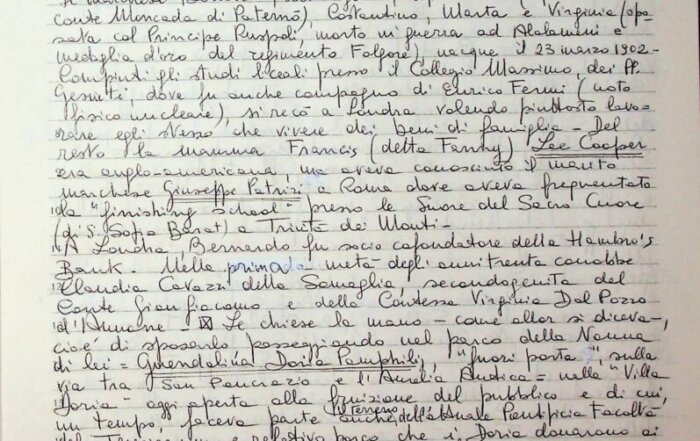 conte Moncada di Paternò), Costantino, Marta e Virginia (spo=
sata col Principe Ruspoli, morto in guerra ad Alalameini e
medaglia d'oro del regimento Folgore), nacque il 23 marzo 1902-
Compiuti gli studi liceali presso il Collegio Massimo, dei PP.
Gesuiti, dove fu anche compagno di Enrico Fermi (noto
fisico nucleare), si recò a Londra volendo piuttosto lavo=
rare egli stesso che vivere dei beni di famiglia - Del
resto la mamma Francis (detta Fanny) Lee Cooper
era anglo-americana, ma aveva conosciuto il marito
marchese Giuseppe Patrizi a Roma dove aveva frequentato
la "finishing school" presso le Suore del Sacro Cuore
(di S. Sofia Barat) a Trinità dei Monti-
A Londra, Bernardo fu socio cofondatore della Hambro's
Bank. Nella prima metà degli anni trenta conobbe
Claudia Cavazzi della Somaglia, secondogenita del
Conte Gian Giacomo e della Contessa Virginia Dal Pozzo
d'Annone - Le chiese la mano - come allor si diceva-,
cioè di sposarlo passeggiando nel parco della Nonna
di lei = Guendalina Doria Pamphili, "fuori porta", sulla
via tra San Pancrazio e l'Aurelia Antica = nella "Villa
Doria" oggi aperta alla fruizione del pubblico e di cui,
un tempo, faceva parte anche il terreno dell'attuale Pontificia Facoltà
e relativo parco che i Doria donarono ai